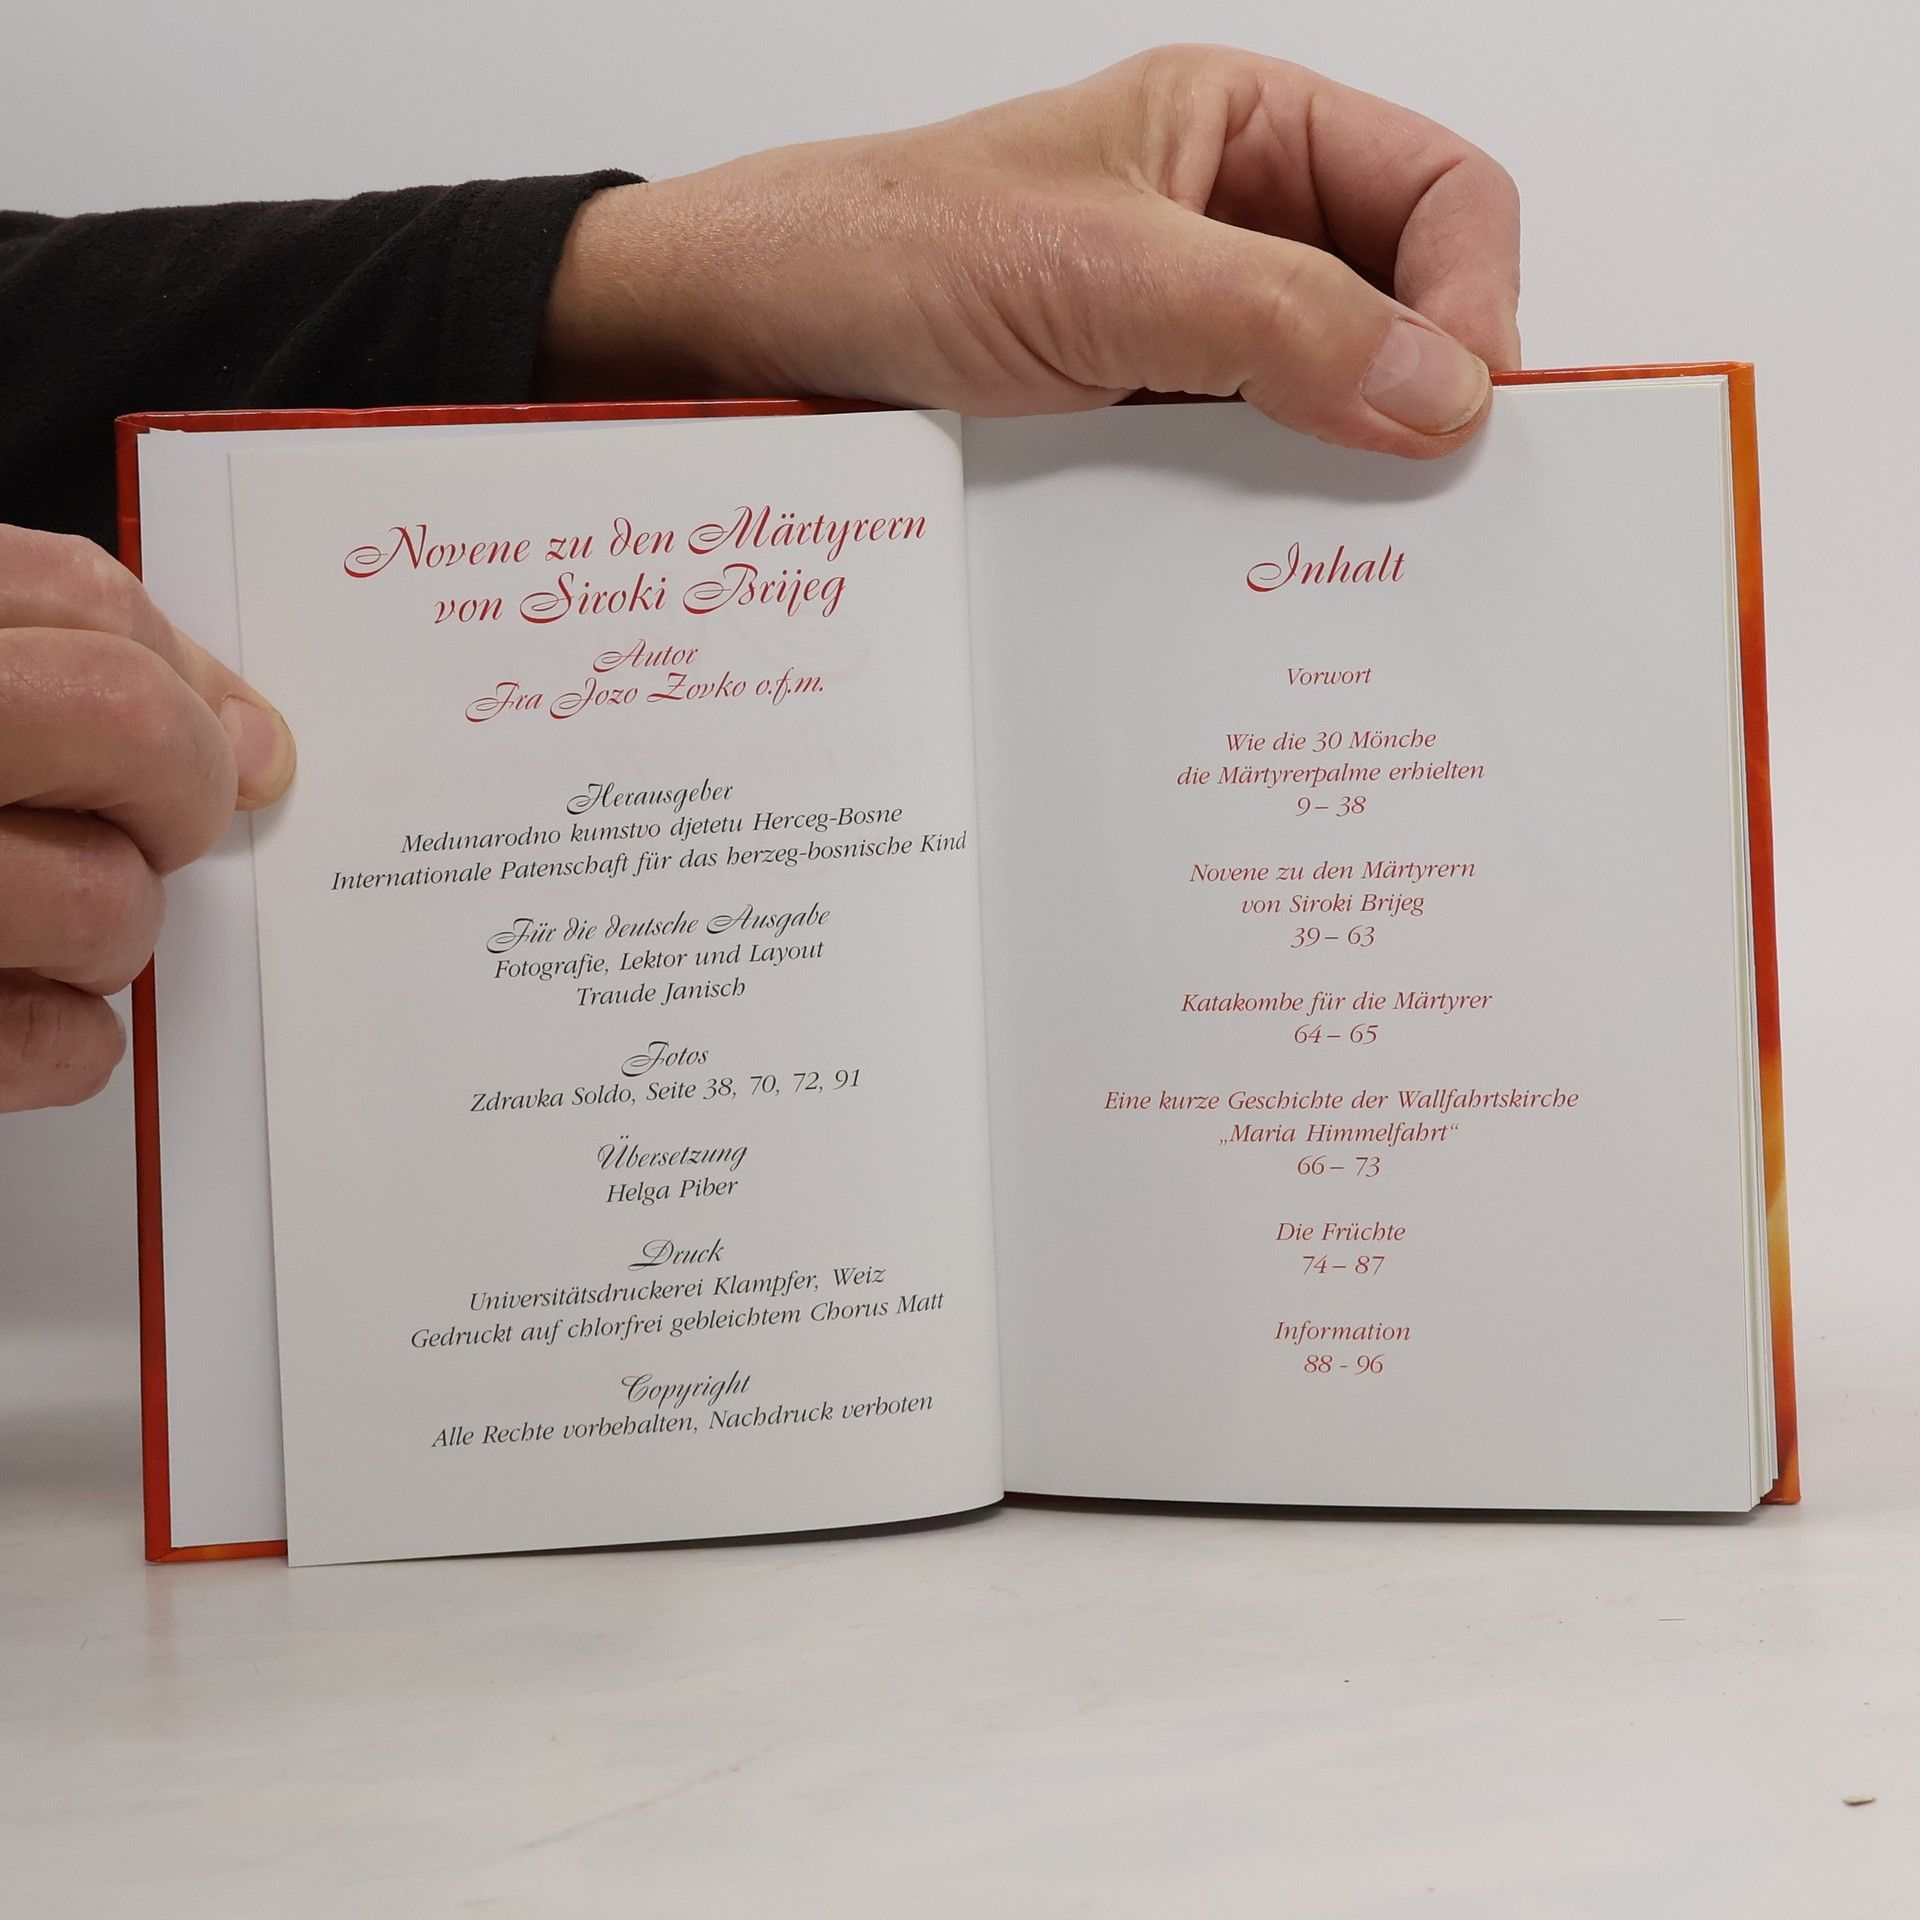 Novene zu den Märtyrern
von Siroki Brijeg
Autor
Fra Jozo Zovko o.f.m.
Herausgeber
Medunarodno kumstvo djetetu Herceg-Bosne
Internationale Patenschaft für das herzeg-bosnische Kind
Für die deutsche Ausgabe
Fotografie, Lektor und Layout
Traude Janisch
Fotos
Zdravka Soldo, Seite 38, 70, 72, 91
Übersetzung
Helga Piber
Druck
Universitätsdruckerei Klampfer, Weiz
Gedruckt auf chlorfrei gebleichtem Chorus Matt
Copyright
Alle Rechte vorbehalten, Nachdruck verboten
Inhalt
Vorwort
Wie die 30 Mönche
die Märtyrerpalme erhielten
9 – 38
Novene zu den Märtyrern
von Siroki Brijeg
39 – 63
Katakombe für die Märtyrer
64 – 65
Eine kurze Geschichte der Wallfahrtskirche
„Maria Himmelfahrt“
66 – 73
Die Früchte
74 – 87
Information
88 - 96